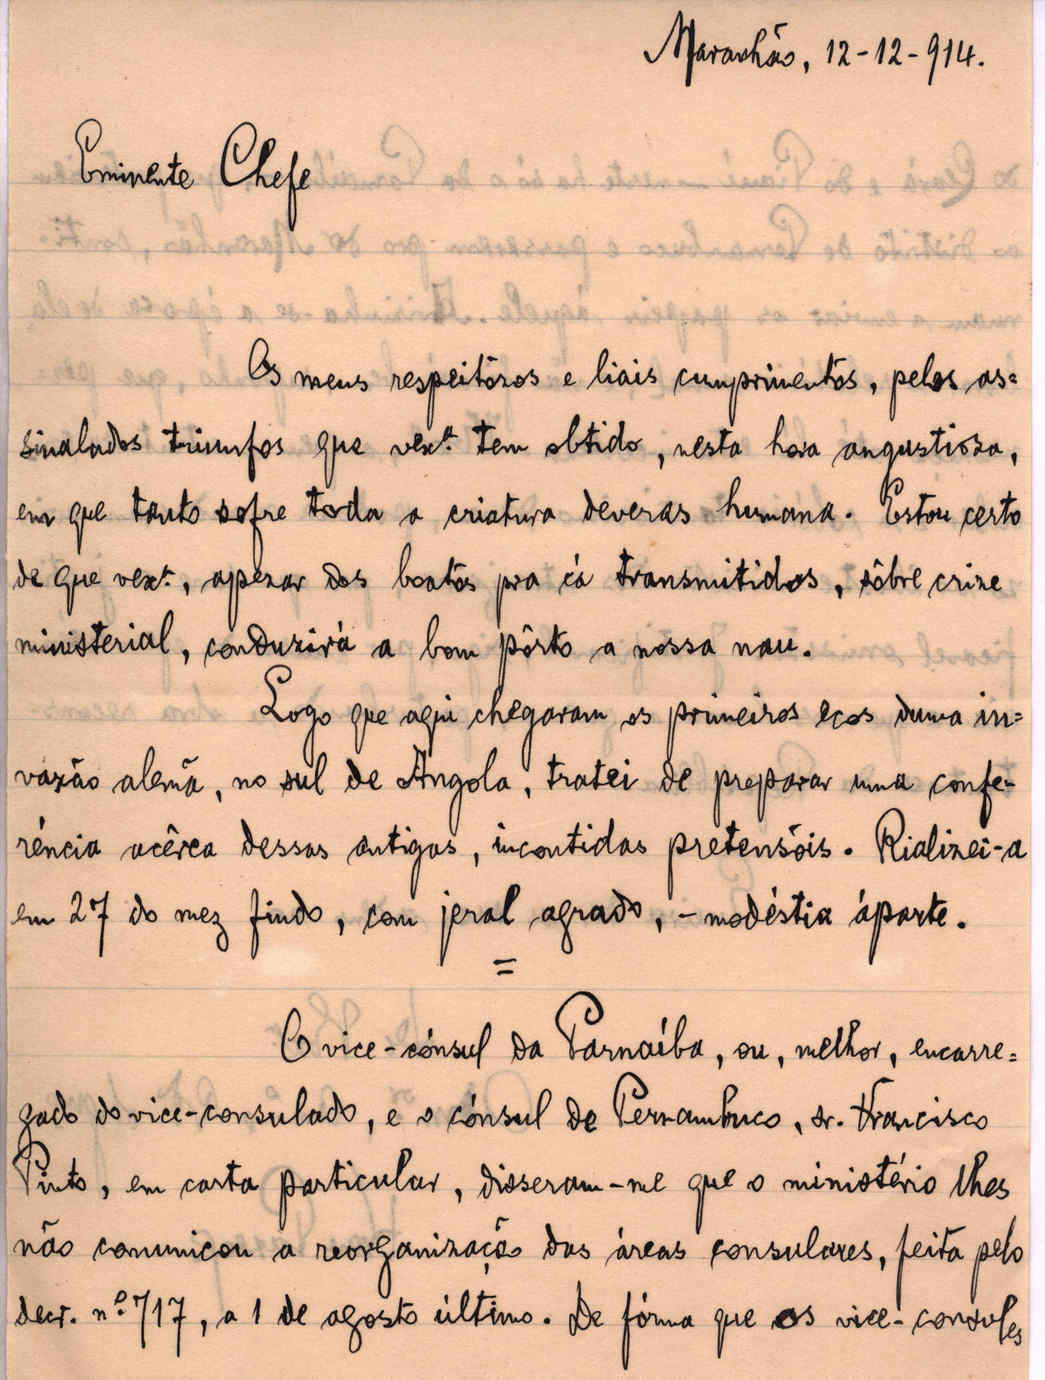 Maranhão, 12-12-914.
Eminente Chefe
Os meus respeitózos e liais cumprimentos, pelos as=
sinalados triunfos que vexª. tem obtido, nesta hora angustioza,
em que tanto sofre toda a criatura deveras humana. Estou certo
de que vexª., apezar dos boatos pra cá transmitidos, sôbre crize
ministerial, conduzirá a bom pôrto a nossa nau.
Logo que aqui chegaram os primeiros ecos duma in=
vazão alemã, no sul de Angola, tratei de preparar uma confe-
rência acêrca dessas antigas, incontidas pretensõis. Rializei-a
em 27 do mez findo, com jeral agrado, - modéstia áparte.
=
O vice-cónsul da Parnaíba, ou, melhor, encarre=
gado do vice-consulado, e o cónsul de Pernambuco, sr. Francisco
Pinto, em carta particular, disseram-me que o ministério lhes
não comunicou a reorganização das áreas consulares, feita pelo
decr. nº. 717, a 1 de agosto último. De fórma que os vice-consules